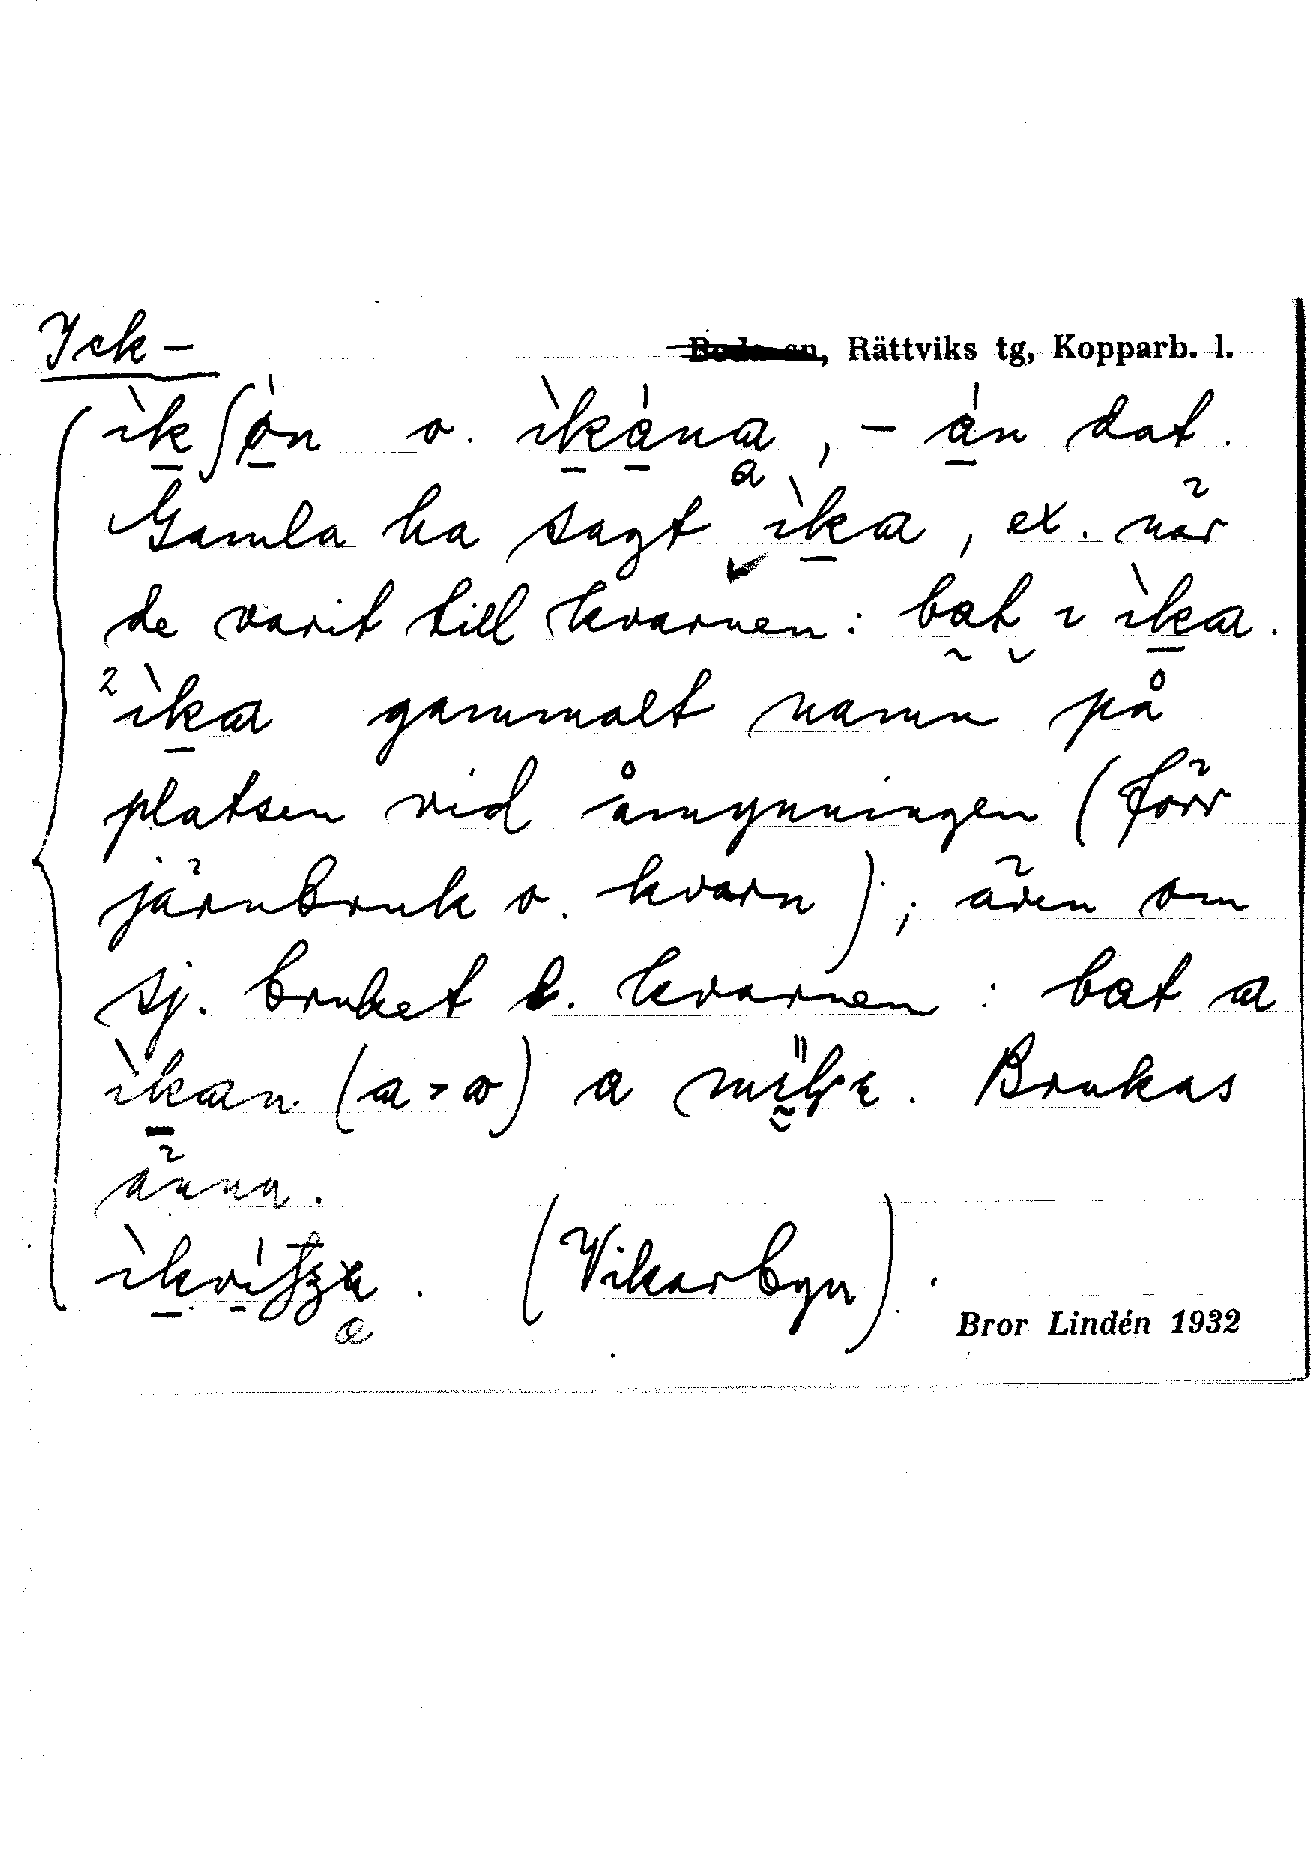 Ick-
Rättviks tg, Kopparb. l.
o. , - dat.
Gamla ha sagt ìka, ex. när
de varit till kvarnen: bat ı ìka.
²ìka gammalt namn på
platsen vid åmynningen (förr
järnbruk o. kvarn); även om
sj. bruket l. kvarnen: bat a
ìkan a Brukas
ännu.
(Vikarbyn).
Bror Lindén 1932